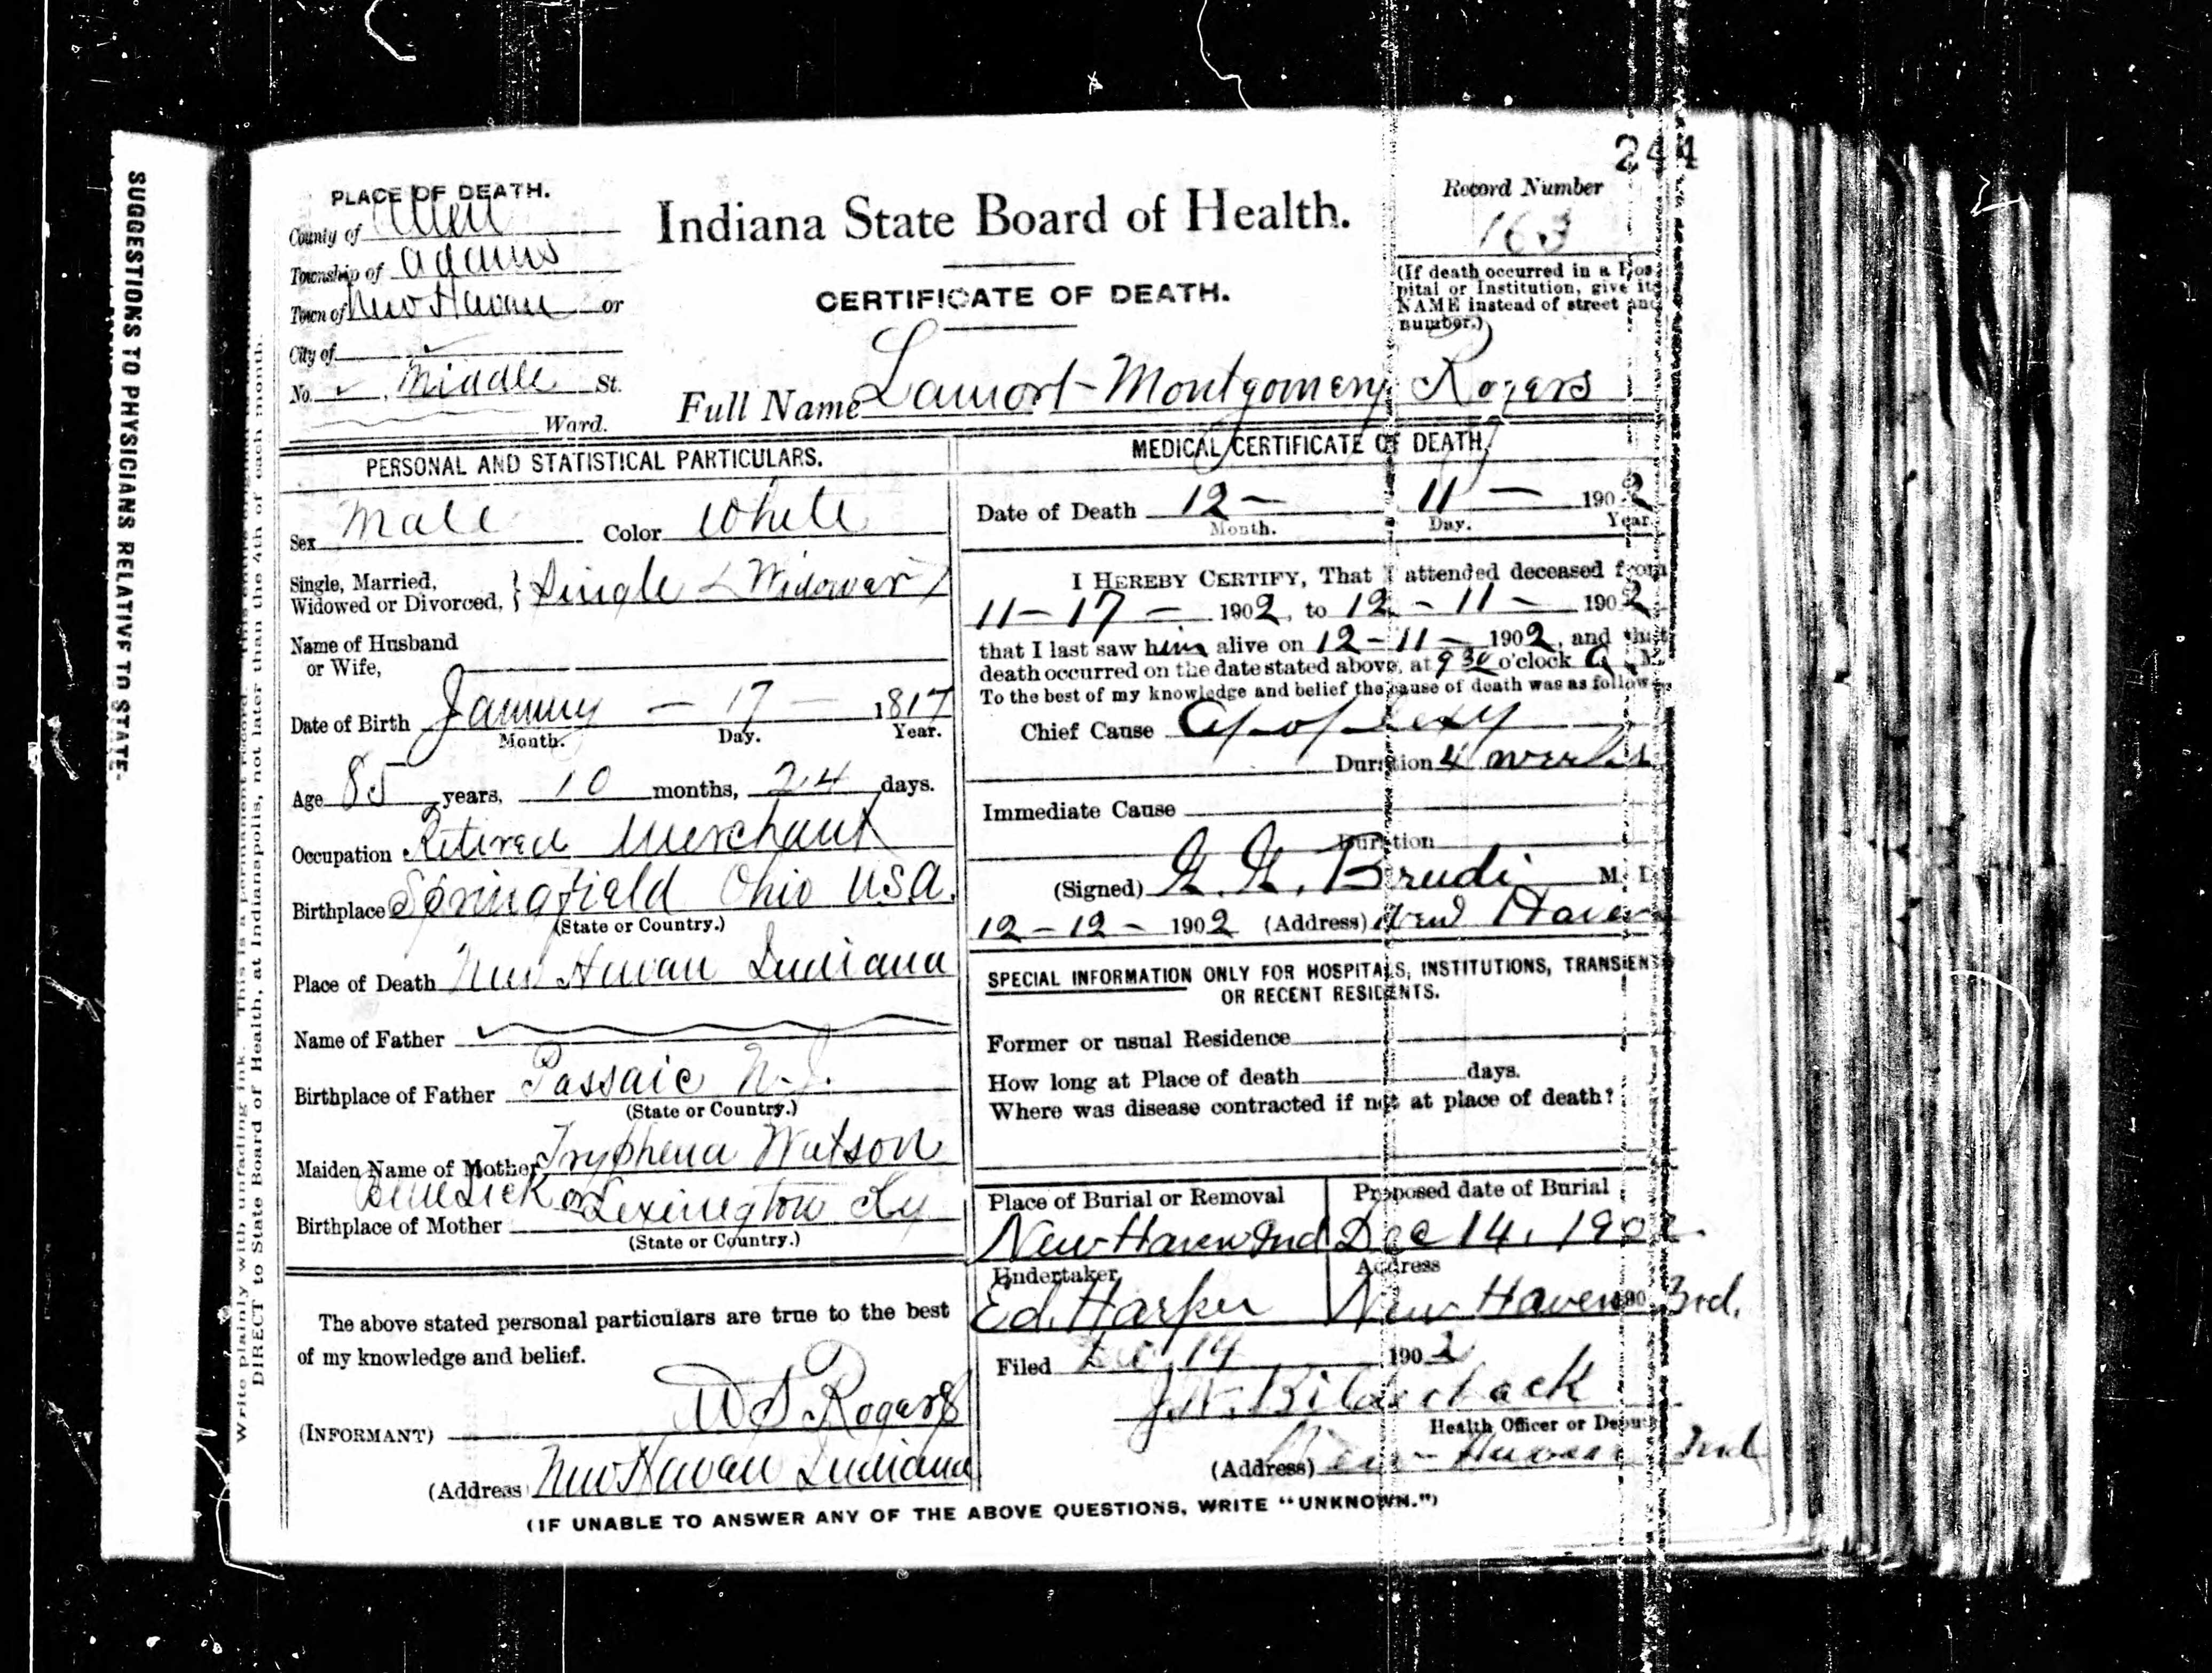 244
SUGGESTIONS TO PHYSICIANS RELATIVE TO STATE-
Write plainly with unfading ink. This is a permanent record.
DIRECT to State Board of Health, at Indianapolis, not later than the 4th of each month.
PLACE OF DEATH.
County of Allen
Township of Adams
Town of New Haven or
City of
No. Middle St.
Ward.
Indiana State Board of Health.
CERTIFICATE OF DEATH.
Record Number
163
(If death occurred in a Hos-
pital or Institution, give its
NAME instead of street and
number.)
Full Name Lamort - Montgomery Rogers
PERSONAL AND STATISTICAL PARTICULARS.
Sex Male Color White
Single, Married,
Widowed or Divorced, } Single (Widower)
Name of Husband
or Wife,
Date of Birth January - 17 - 1817
Month. Day. Year.
Age 85 years, 10 months, 24 days.
Occupation Retired Merchant
Birthplace Springfield Ohio USA.
(State or Country.)
Place of Death New Havan Indiana
Name of Father
Birthplace of Father Passaic N.J.
(State or Country.)
Maiden Name of Mother Tryphena Watson
or
Birthplace of Mother Lexington Ky
(State or Country.)
The above stated personal particulars are true to the best
of my knowledge and belief.
(INFORMANT) W S Rogers
(Address) New Havan Indiana
MEDICAL CERTIFICATE OF DEATH.
Date of Death 12 - 11 - 1902
Month. Day. Year.
I HEREBY CERTIFY, That I attended deceased from
11 - 17 - 1902, to 12 - 11 - 1902
that I last saw him alive on 12 - 11 - 1902, and that
death occurred on the date stated above, at 9 30 o'clock A M.
To the best of my knowledge and belief the cause of death was as follow
Chief Cause Apoplexy
Duration 4 weeks
Immediate Cause
Duration
(Signed) G. G. Brudi M. D
12 - 12 - 1902 (Address) New Haven
SPECIAL INFORMATION ONLY FOR HOSPITALS, INSTITUTIONS, TRANSIENTS
OR RECENT RESIDENTS.
Former or usual Residence
How long at Place of death days.
Where was disease contracted if not at place of death?
Place of Burial or Removal
New Haven Ind
Proposed date of Burial
Dec 14, 1902.
Undertaker
Ed. Harper
Address
New Haven 190 Ind.
Filed Dec 14 1902
J.W. Bilderback
Health Officer or Deputy
(Address) New Haven Ind
(IF UNABLE TO ANSWER ANY OF THE ABOVE QUESTIONS, WRITE "UNKNOWN.")